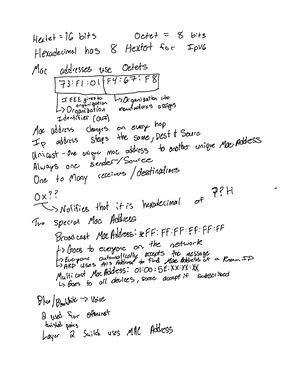 Hextet = 16 bits    Octet = 8 bits
Hexadecimal has 8 Hextet for IPv6
Mac addresses use Octets
73:F1:01:F4:67:F8
IEEE gives to organization
↳ Organization Identifier (OUI)
↳ Organization who manufactures assigns
Mac address changes on every hop
Ip address stays the same, Dest & Source
Unicast - One unique mac address to another unique Mac Address
Always one sender/Source
One to Many receivers / destinations
0x??
↳ Notifies that it is hexadecimal of ??H
Two special Mac Address
Broadcast Mac Address: FF:FF:FF:FF:FF:FF
↳ Goes to everyone on the network
↳ Everyone automatically accepts the message
↳ ARP uses this Address to find Mac Address of a known IP
Multicast Mac Address: 01:00:5E:XX:XX:XX
↳ Goes to all devices, some accept if subscribed
Blue/ → Voice
2 used for ethernet
twisted pairs
Layer 2 Switch uses MAC Address